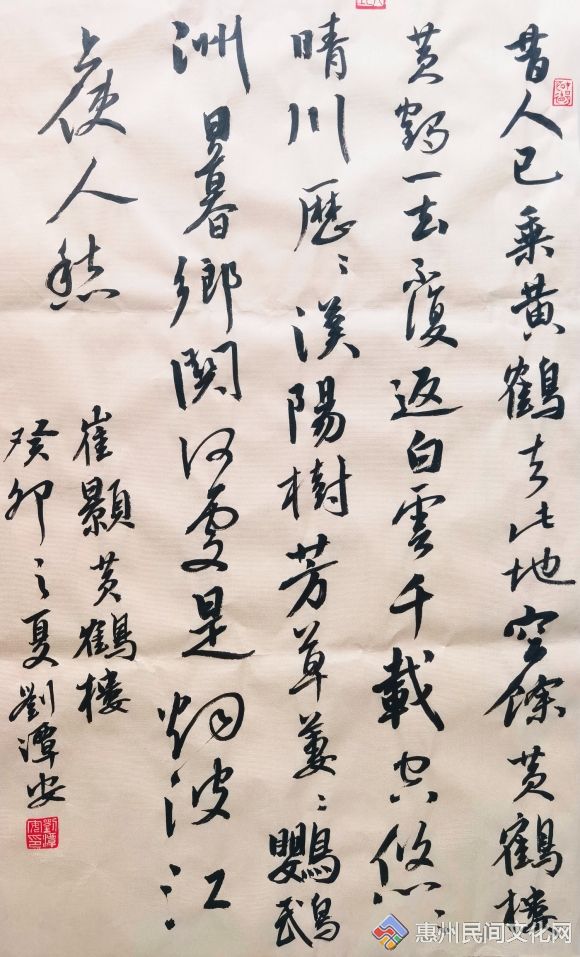 昔人已乘黄鶴去此地空餘黄鶴樓
黄鶴一去不復返白雲千載空悠〻
晴川歷〻漢陽樹芳草萋〻鸚鵡
洲日暮鄉関何處是烟波江
上使人愁
崔顥黄鶴樓
癸卯之夏劉潭安
劉潭安印
惠州民间文化网